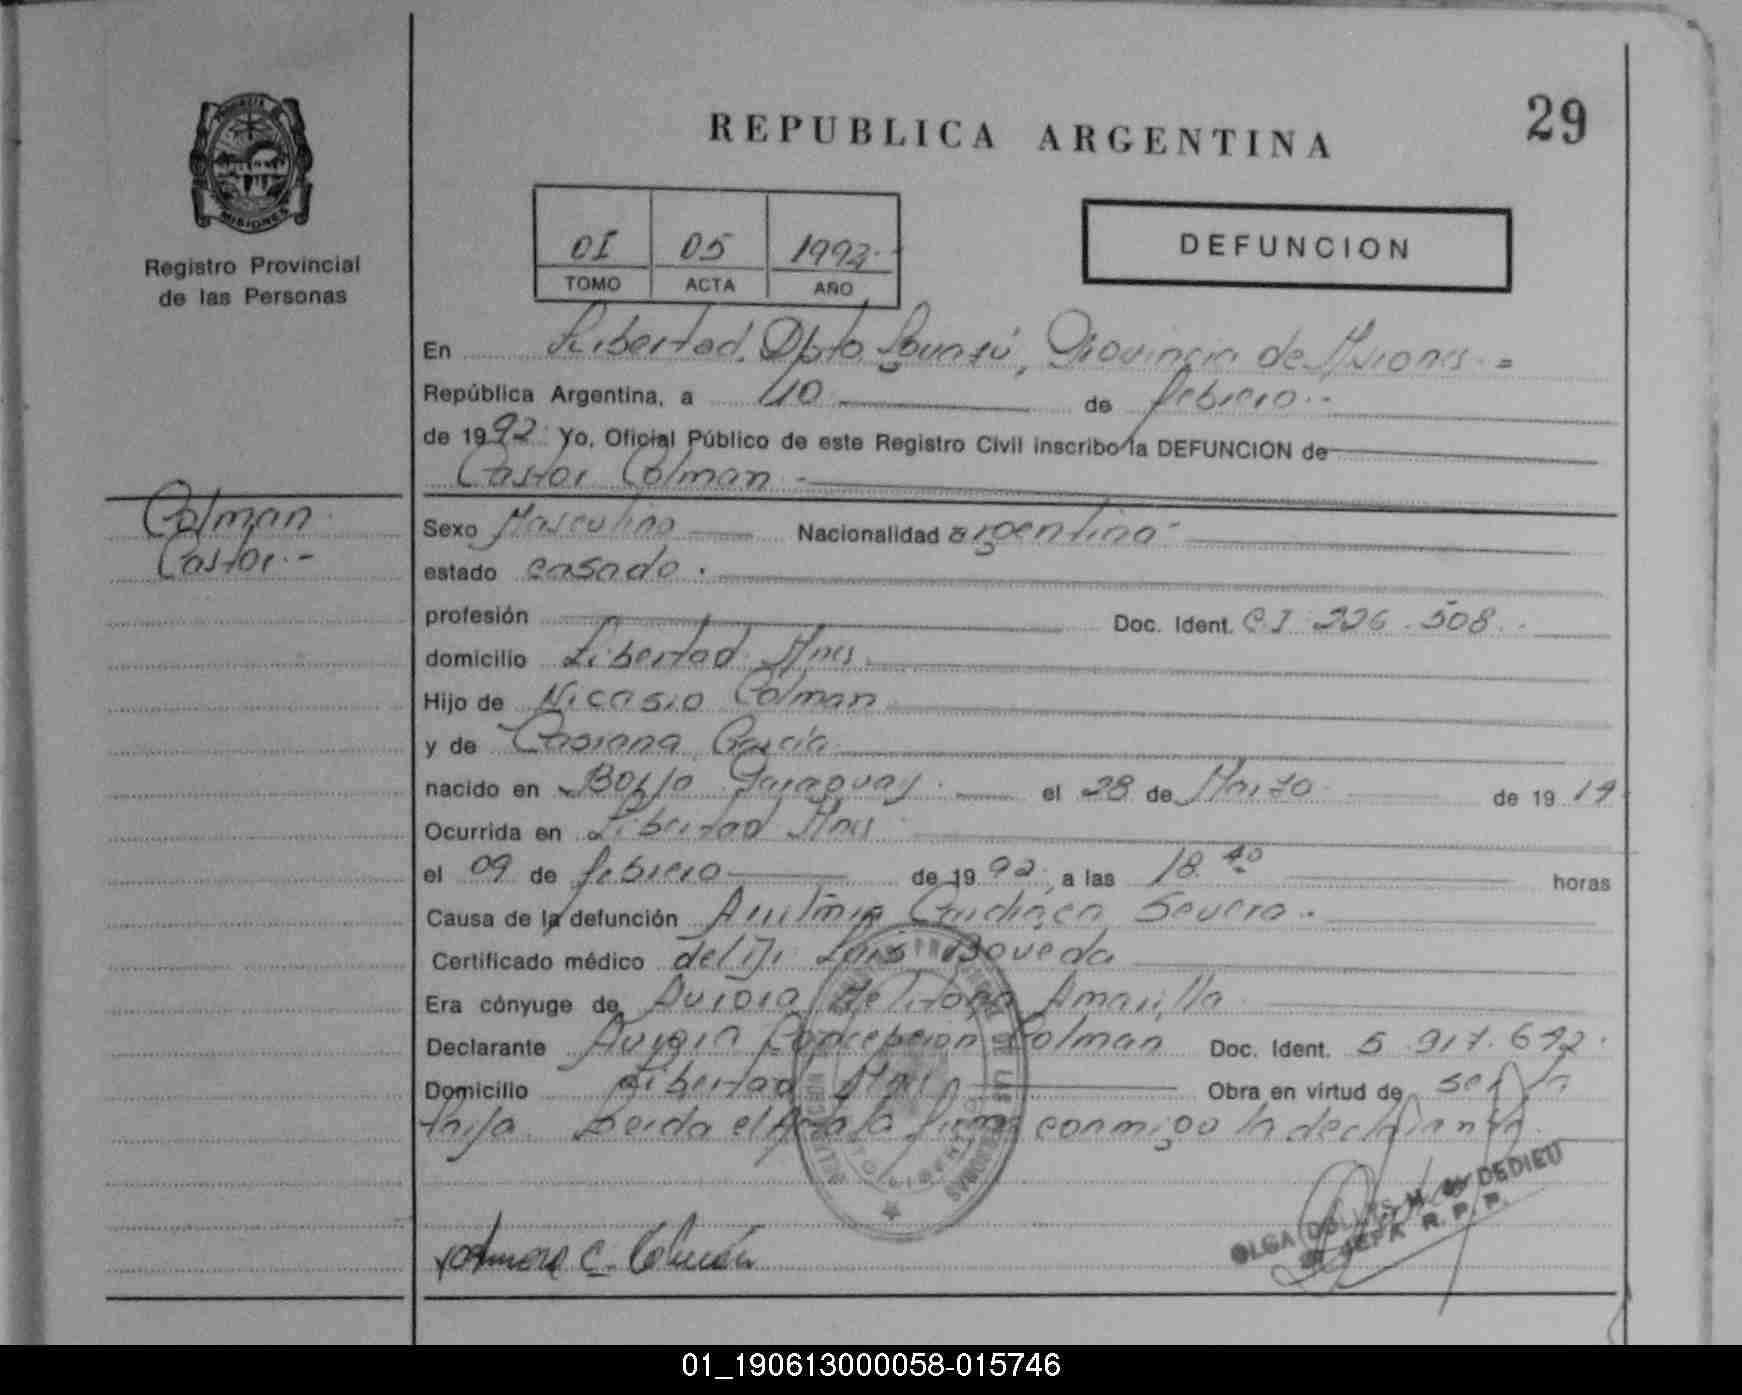 REPUBLICA ARGENTINA
29
PROVINCIA DE
MISIONES
Registro Provincial
de las Personas
OI 05 1992.-
TOMO ACTA AÑO
DEFUNCION
En Libertad, Dpto Iguazú, Provincia de Misiones.=
República Argentina, a 10 de febrero.-
de 1992. Yo, Oficial Público de este Registro Civil inscribo la DEFUNCION de
Castor Colman.-
Colman
Castor.-
Sexo Masculino Nacionalidad argentina-
estado casado.
profesión Doc. Ident. C I 226.508.-
domicilio Libertad Mnes
Hijo de Nicasio Colman
y de Casiana García
nacido en Paraguay. el 28 de Marzo de 1914
Ocurrida en Libertad Mnes
el 09 de febrero de 1992, a las 18 40 horas
Causa de la defunción Cardiaca Severa.
Certificado médico del Dr Luis Boveda
Era cónyuge de Aurora Amarilla
Declarante Aurora Concepcion Colman Doc. Ident. 5.917.692.
Domicilio Libertad Mnes Obra en virtud de ser la
hija. Leida el Acta la firma conmigo la declarante.
OLGA DOLORES M. DE DEDIEU
JEFA R. P. P.
C. Colmán
01_190613000058-015746